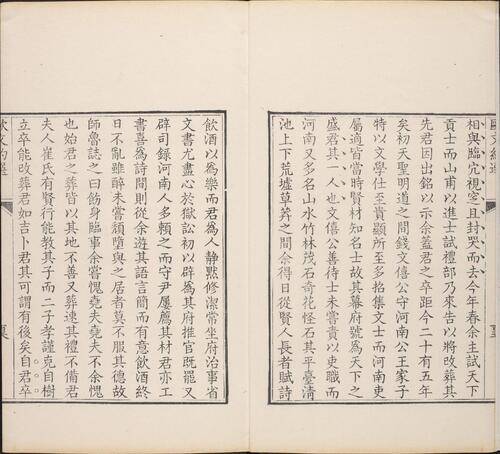 相與臨穴視窆且封哭而去今年春余主試天下
貢士而山甫以進士試禮部乃來告以將改葬其
先君因出銘以示余蓋君之卒距今二十有五年
矣初天聖明道之間錢文僖公守河南公王家子
特以文學仕至貴顯所至多招集文士而河南吏
屬適皆當時賢材知名士故其幕府號為天下之
盛君其一人也文僖公善待士未嘗責以吏職而
河南又多名山水竹林茂石奇花怪石其平臺清
池上下荒墟草莽之間余得日從賢人長者賦詩
飲酒以為樂而君為人靜默修潔常坐府治事省
文書尤盡心於獄訟初以辟為其府推官既罷又
辟司錄河南人多賴之而守尹屢薦其材君亦工
書喜為詩間則從余遊其語言簡而有意飲酒終
日不亂雖醉未嘗頹墮與之居者莫不服其德故
師魯誌之曰飭身臨事余嘗愧堯夫堯夫不余愧
也始君之葬皆以其地不善又葬速其禮不備君
夫人崔氏有賢行能教其子而二子孝謹克自樹
立卒能改葬君如吉卜君其可謂有後矣自君卒